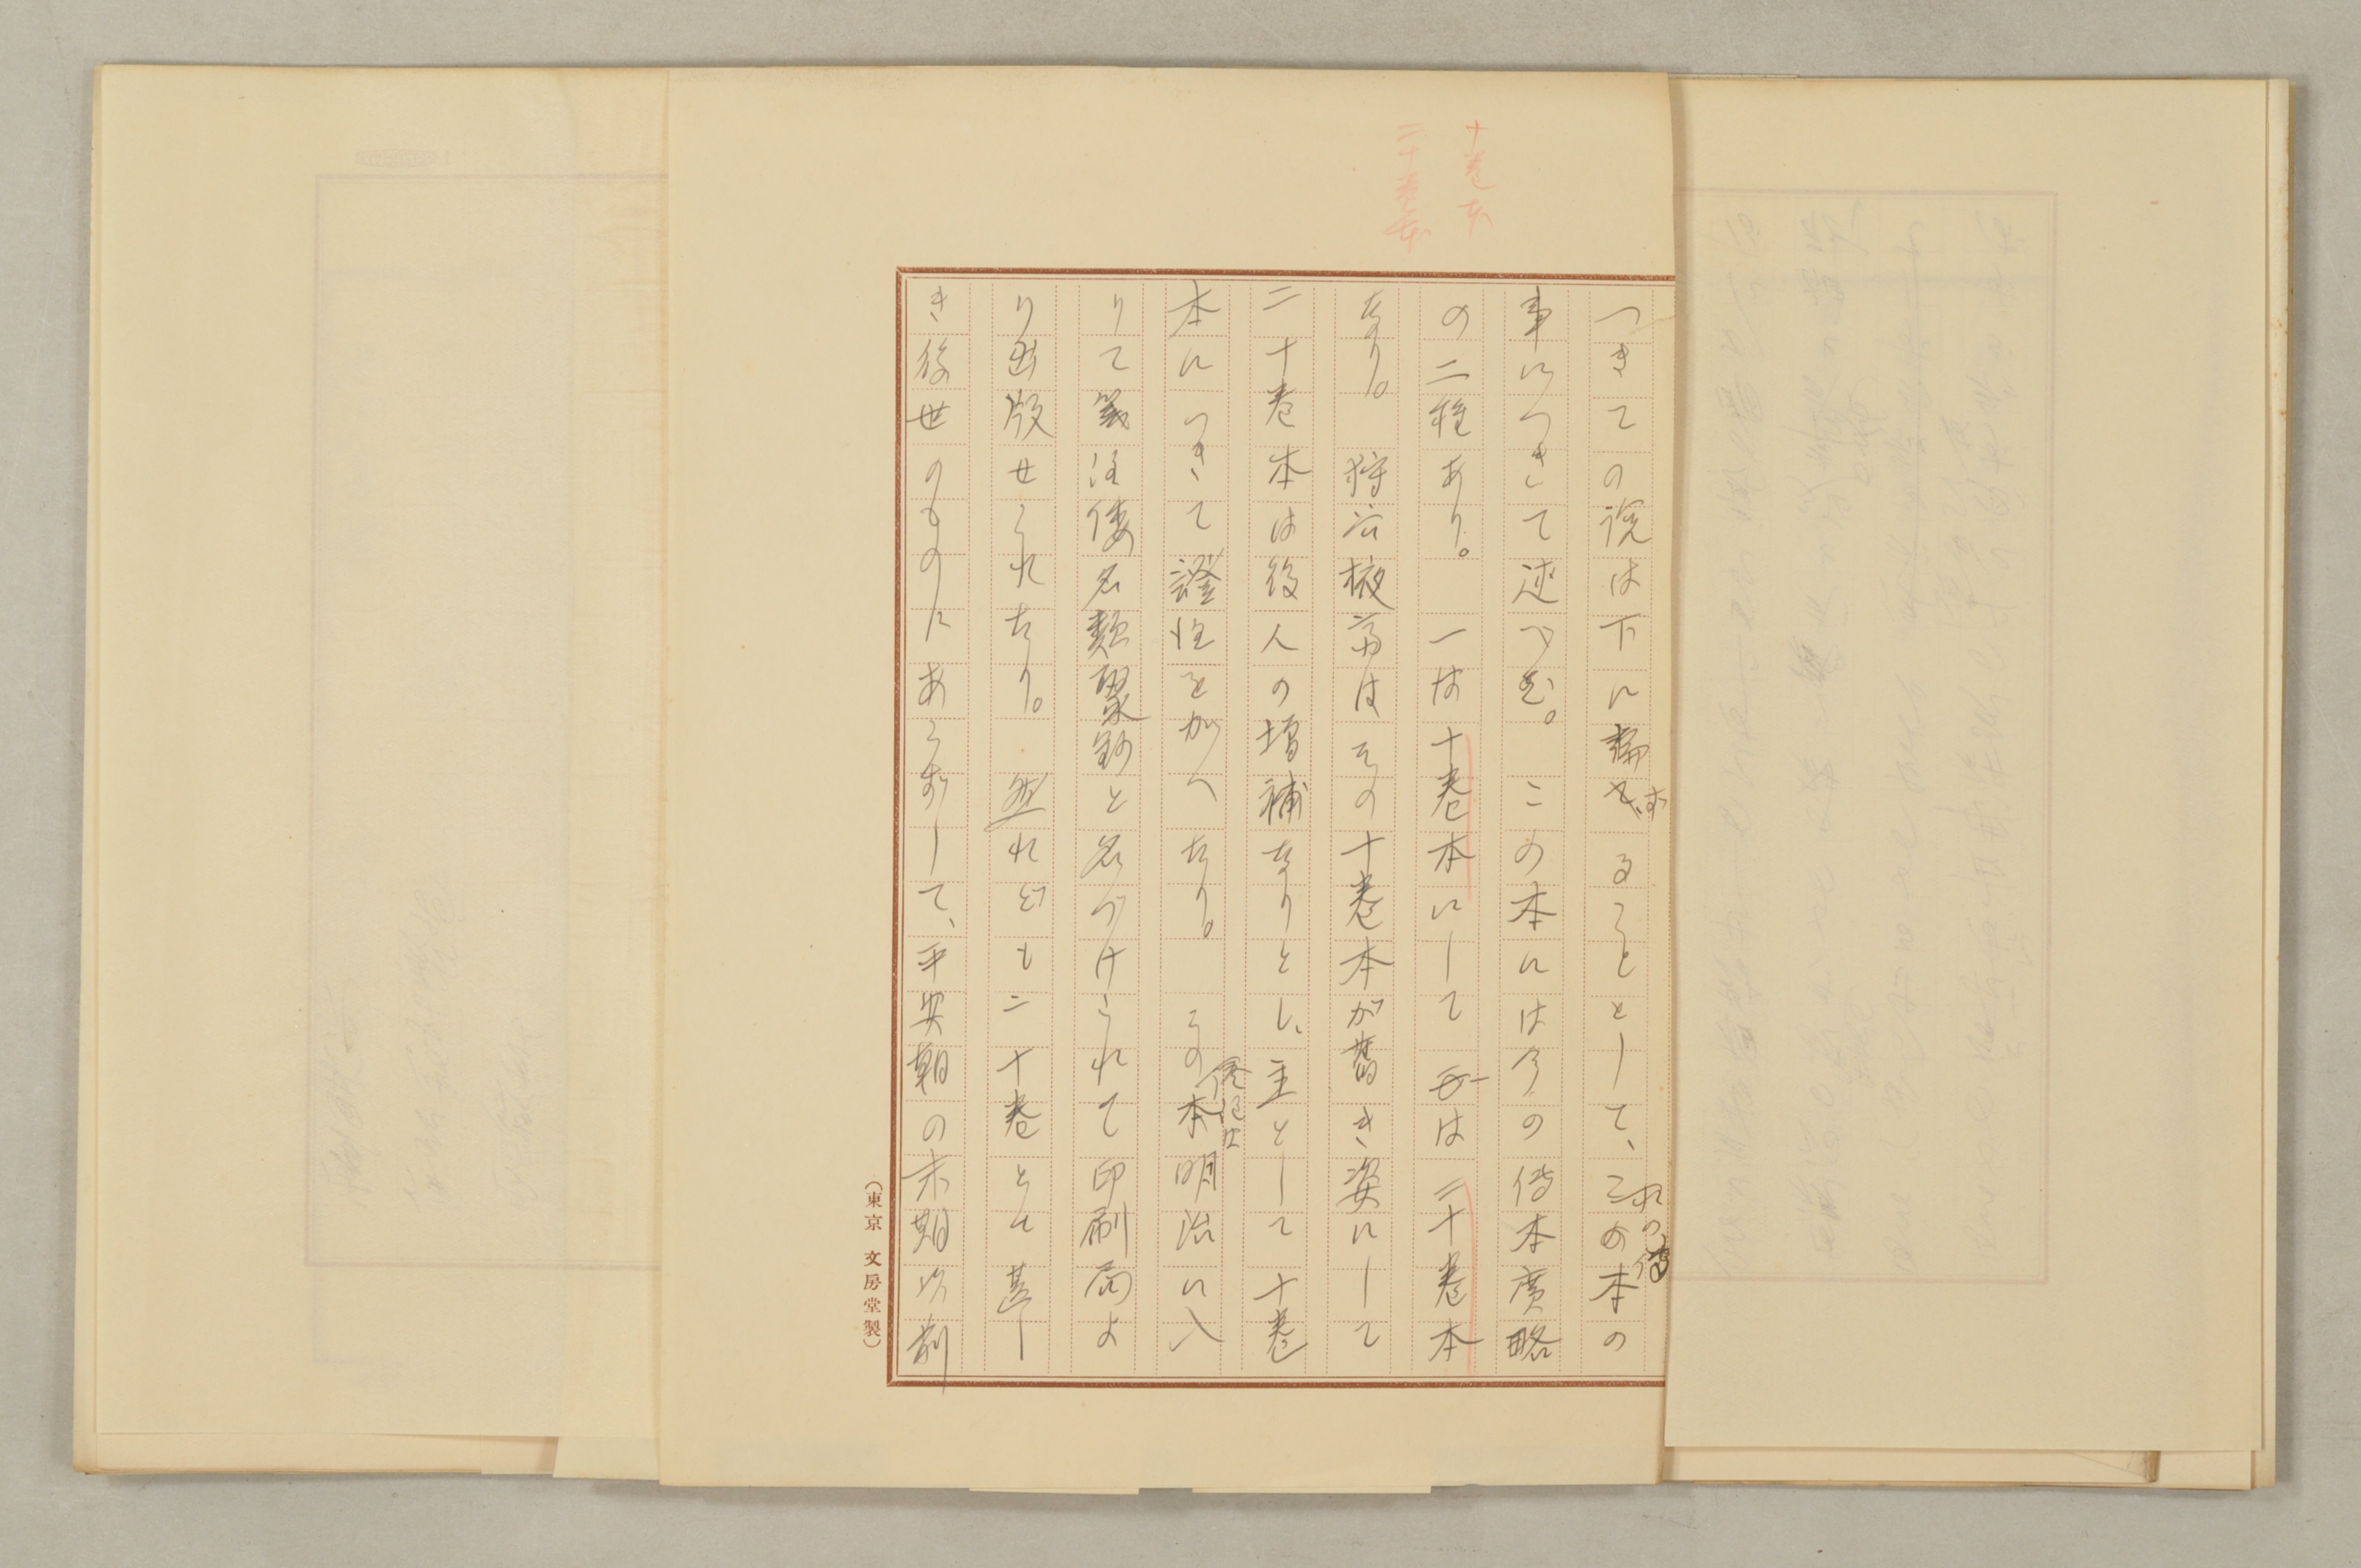 十巻本
二十巻本
つきての説は下に
ることとして、この本の
事につきて述べむ。この本には今の傳本廣略
の二種あり。一は十巻本にして一は二十巻本
なり。狩谷掖斎はその十巻本が舊き姿にして
二十巻本は後人の増補なりとし、主として十巻
本につきて證注を加へたり。その本明治に入
りて箋注倭名類聚鈔と名づけられて印刷局よ
り出版せられたり。然れども二十巻とて甚し
き後世のものにあらずして、平安朝の末期以前
（東京 文房堂製）